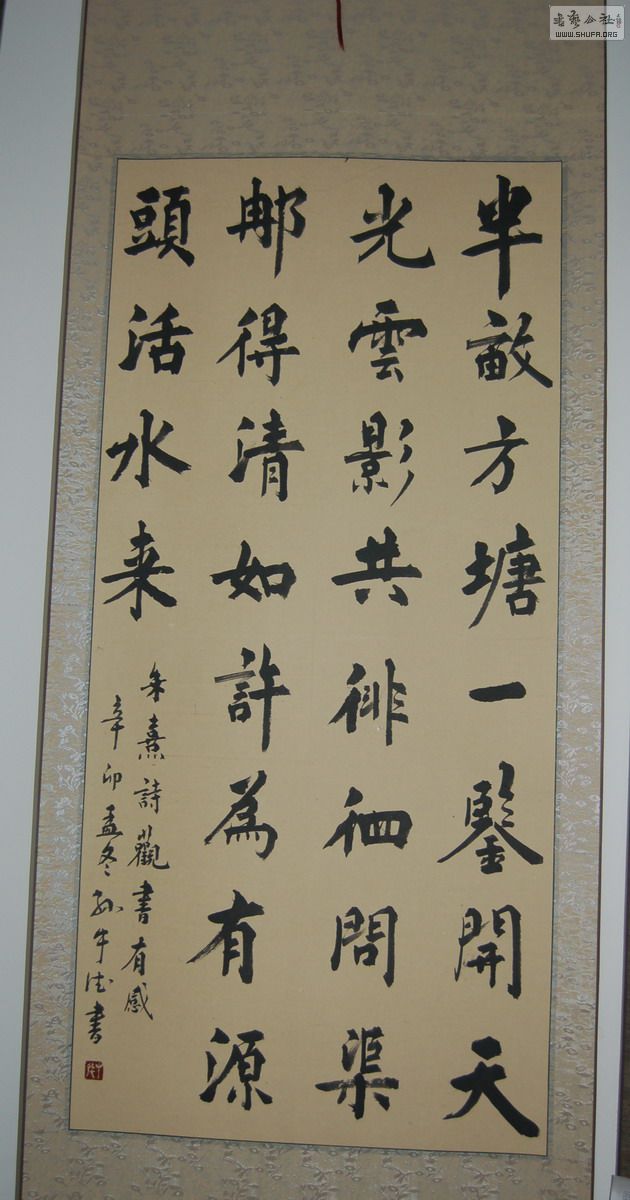 半畝方塘一鑒開天
光雲影共徘徊問渠
那得清如許為有源
頭活水来
朱熹詩觀書有感
辛卯孟冬孫牛法書
书艺公社
WWW.SHUFA.ORG